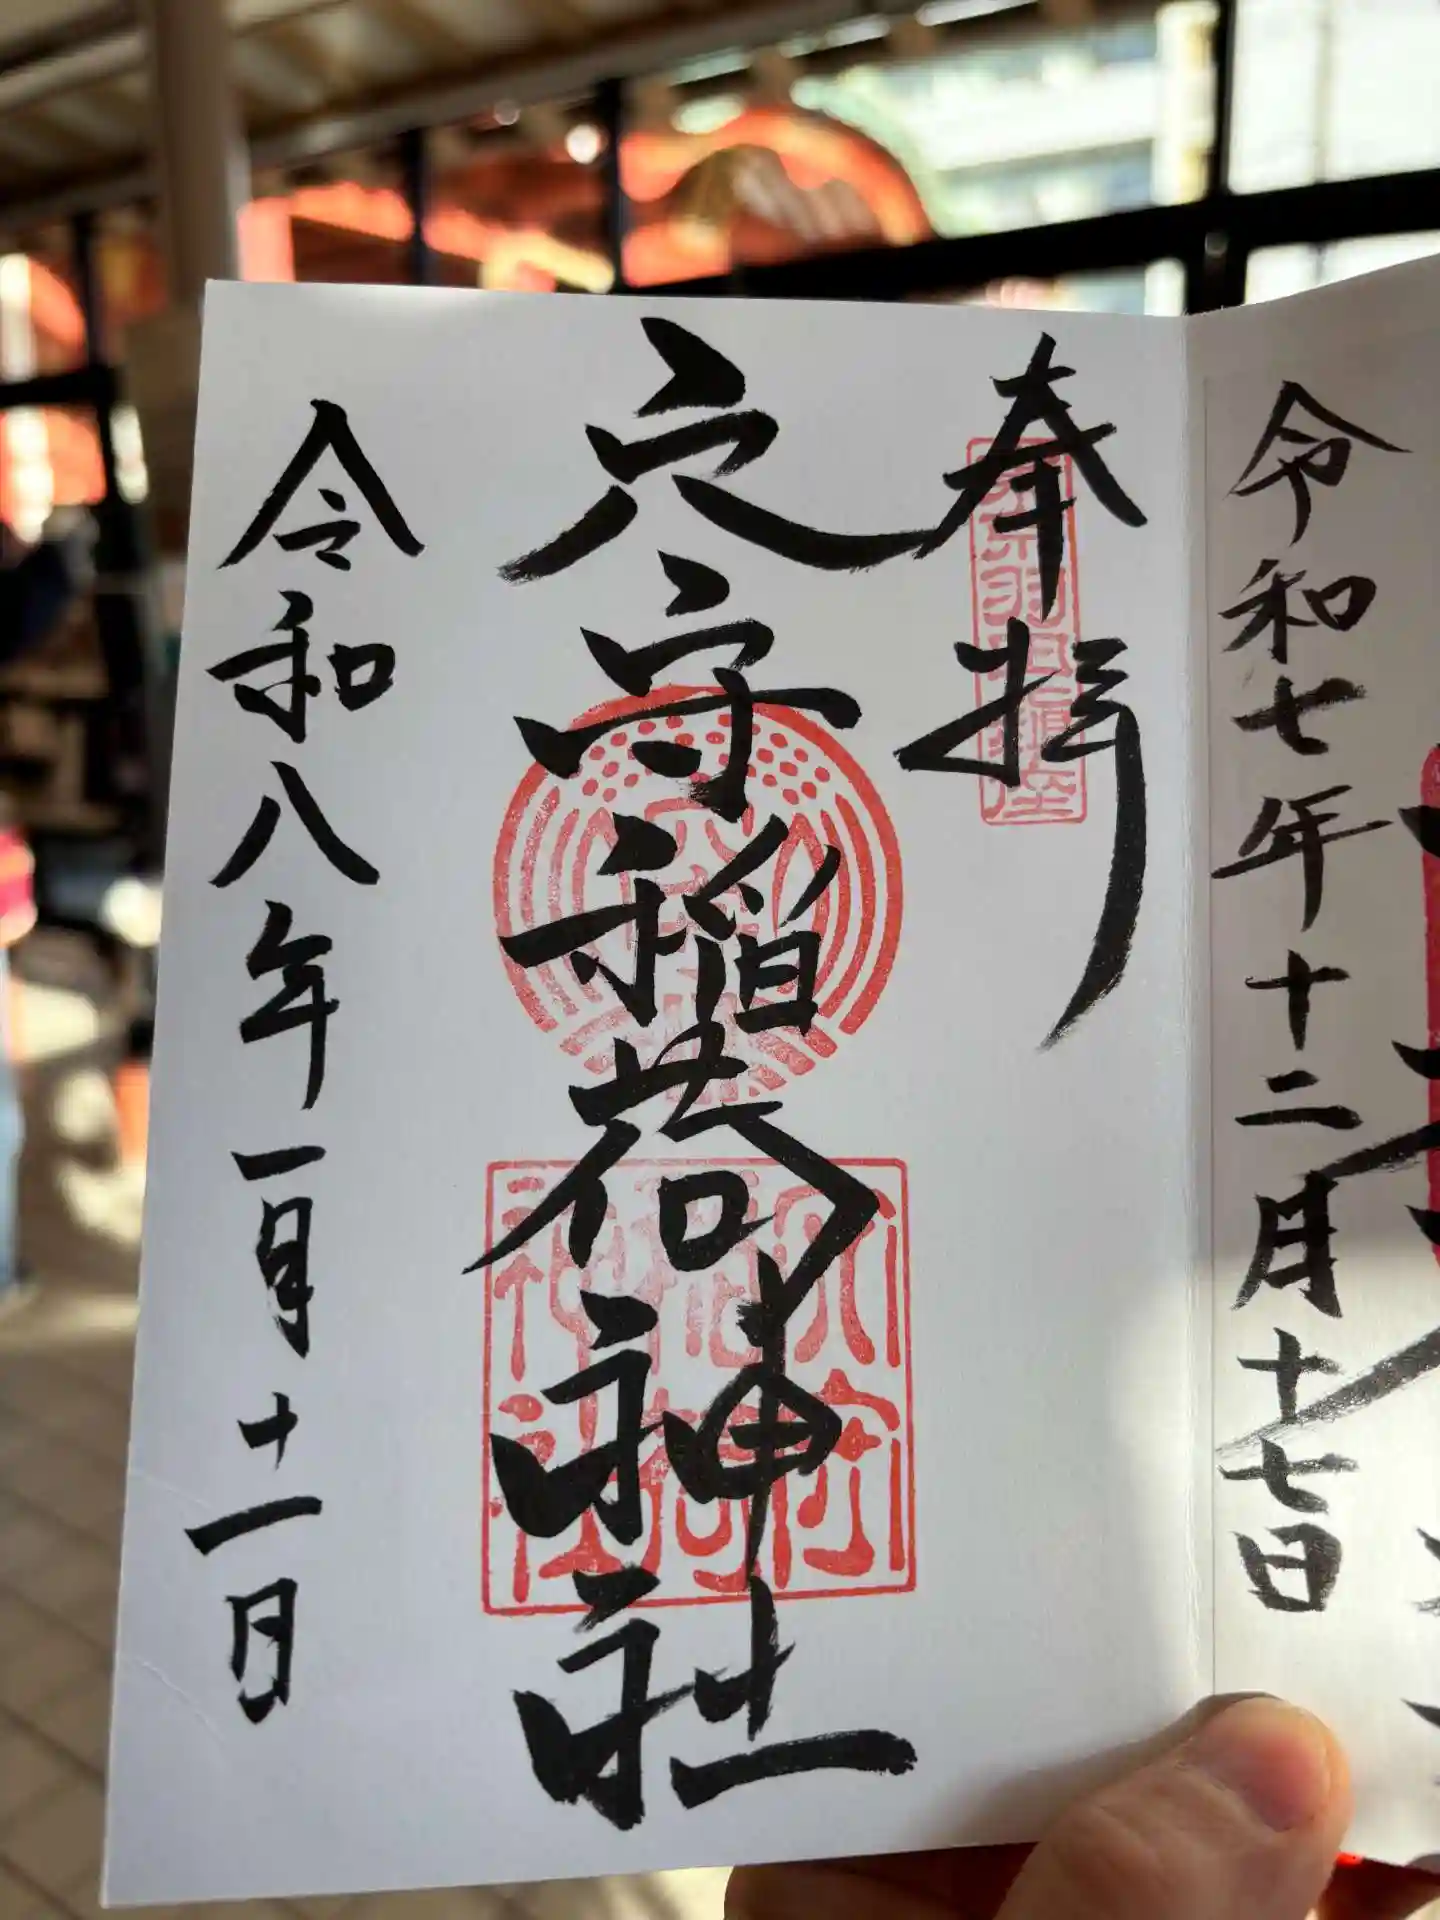 令和七年十二月十七日
奉拝
東京羽田鎮座
穴守稲荷神社
穴守稲荷神社
令和八年一月十一日